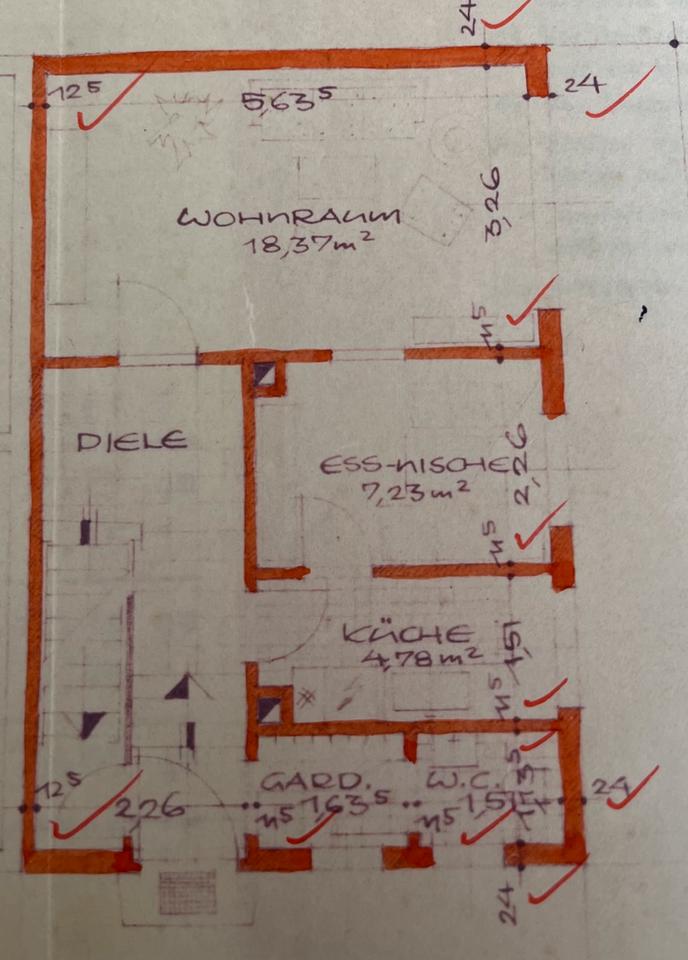 24
12⁵
5,63⁵
24
3,26
WOHNRAUM
18,37m²
11⁵
DIELE
ESS-NISCHE
7,23m²
2,26
11⁵
KÜCHE
4,78m²
1,51
11⁵
GARD.
W.C.
12⁵
2,26
11⁵
1,63⁵
11⁵
1,51
24
24